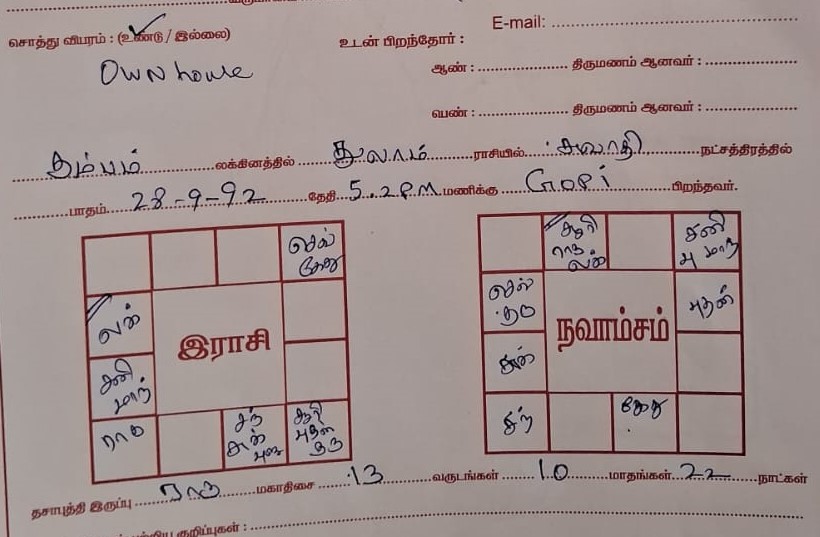 E-mail: ........................
சொத்து விபரம் : (உண்டு / இல்லை)
உடன் பிறந்தோர் :
Own house
ஆண் : .................. திருமணம் ஆனவர் : ..................
பெண் : .................. திருமணம் ஆனவர் : ..................
கும்பம் லக்கினத்தில் துலாம் ராசியில் சுவாதி நட்சத்திரத்தில்
பாதம் 28-9-92 தேதி 5.2 PM மணிக்கு GOPI பிறந்தவர்.
செவ்
கேது
லக்
சனி
மாந்
ராகு
சந்
சுக்
சூரி
புதன்
குரு
இராசி
சூரி
ராகு
லக்
சனி
மாந்
செவ்
குரு
புதன்
சுக்
சந்
கேது
நவாம்சம்
தசாபுத்தி இருப்பு ராகு மகாதிசை 13 வருடங்கள் 10 மாதங்கள் 22 நாட்கள்
குறிப்புகள் :